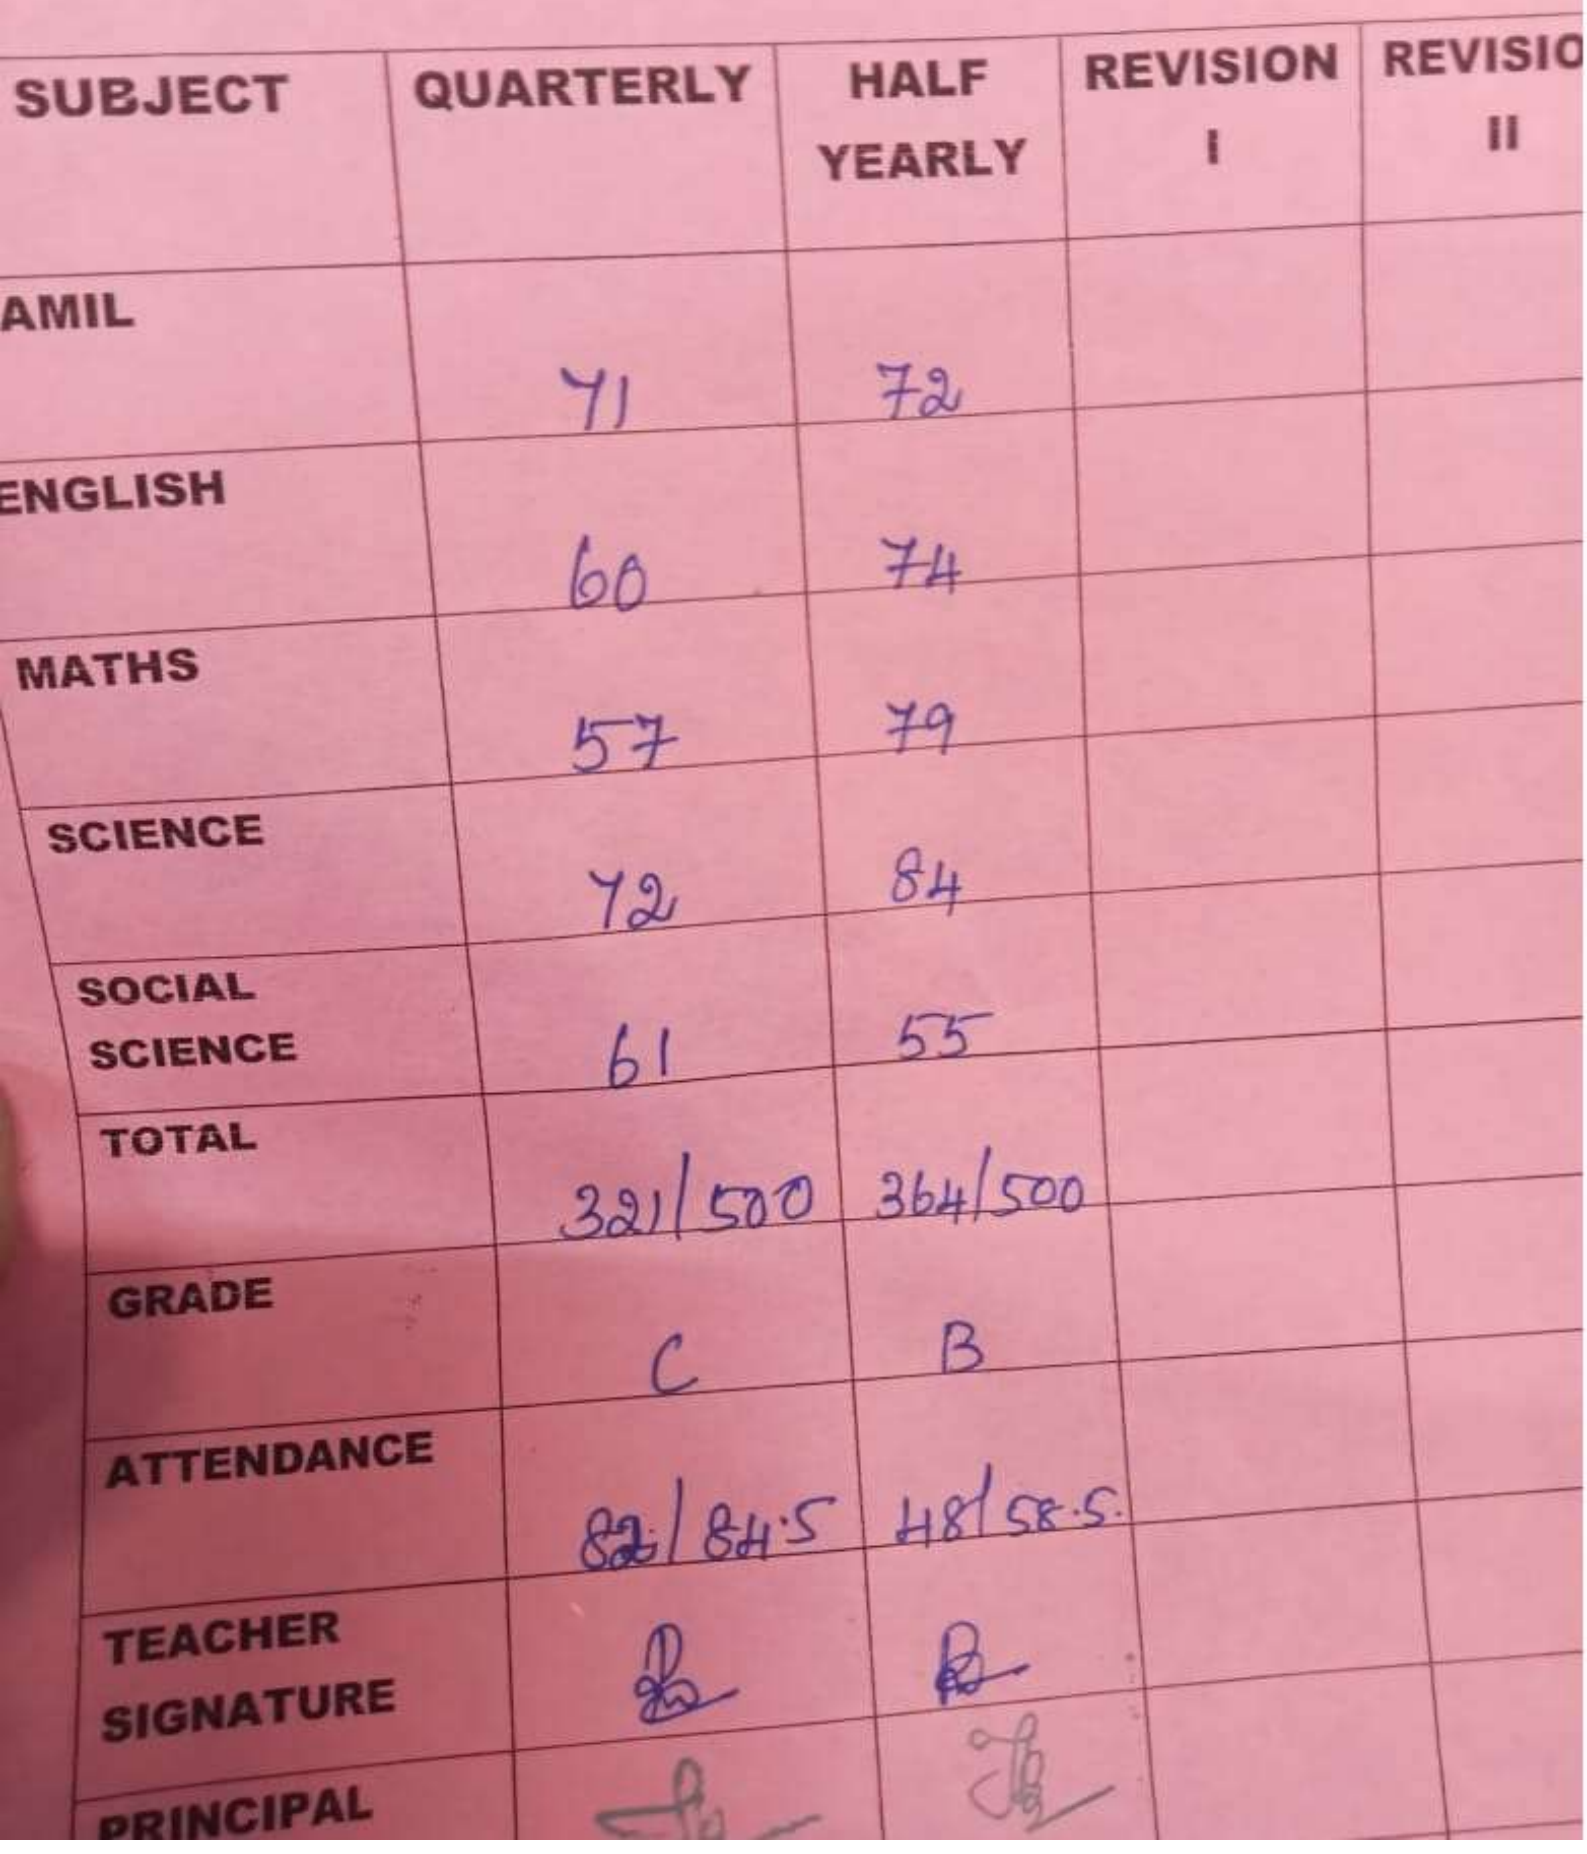 SUBJECT QUARTERLY HALF YEARLY REVISION I REVISIO II
AMIL 71 72
ENGLISH 60 74
MATHS 57 79
SCIENCE 72 84
SOCIAL SCIENCE 61 55
TOTAL 321/500 364/500
GRADE C B
ATTENDANCE 82/84.5 48/58.5.
TEACHER SIGNATURE
PRINCIPAL